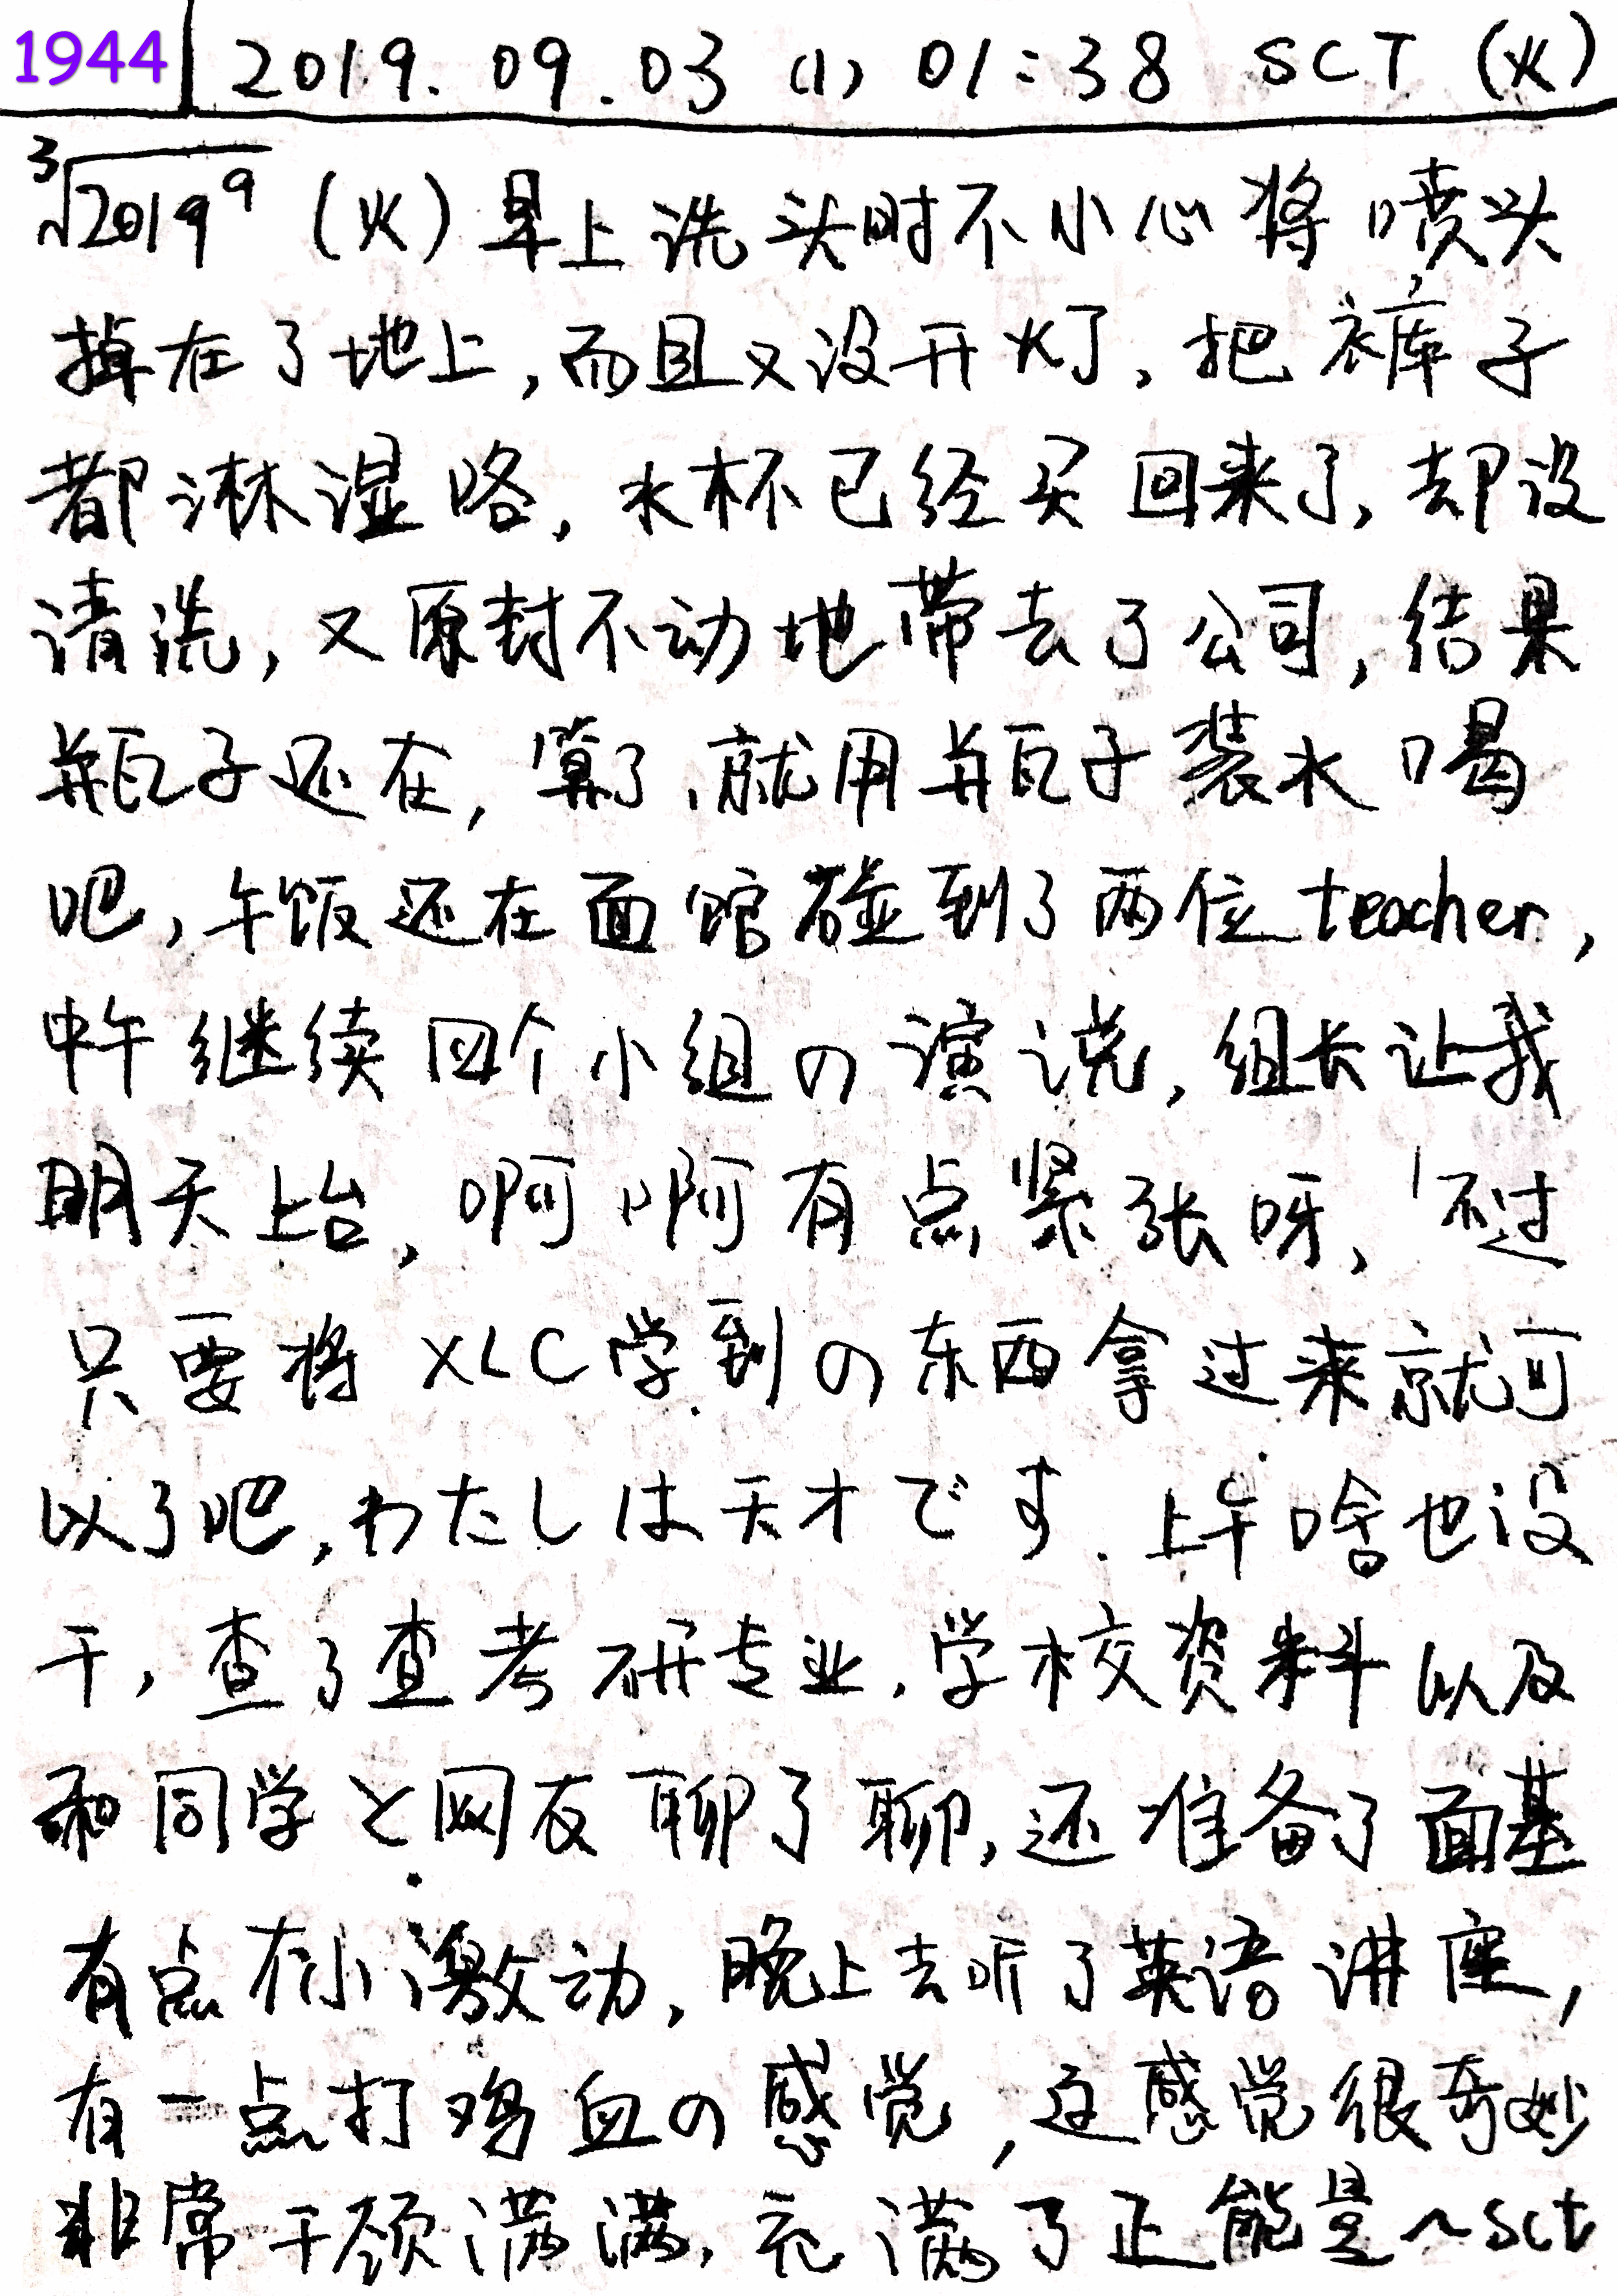 1944 2019.09.03 (1) 01:38 SCT (火)
³√2019⁹ (火) 早上洗头时不小心将喷头
掉在了地上,而且又没开灯,把裤子
都淋湿咯,水杯已经买回来了,却没
清洗,又原封不动地带去了公司,结果
瓶子还在,算了,就用瓶子装水喝
吧,午饭还在面馆碰到了两位teacher,
中午继续四个小组の演说,组长让我
明天上台,啊啊有点紧张呀,不过
只要将XLC学到の东西拿过来就可
以了吧,わたしは天才です.上午啥也没
干,查了查考研专业,学校资料以及
和同学と网友聊了聊,还准备了面基
有点小激动,晚上去听了英语讲座,
有一点打鸡血の感觉,这感觉很奇妙
非常干颈满满,充满了正能量~sct